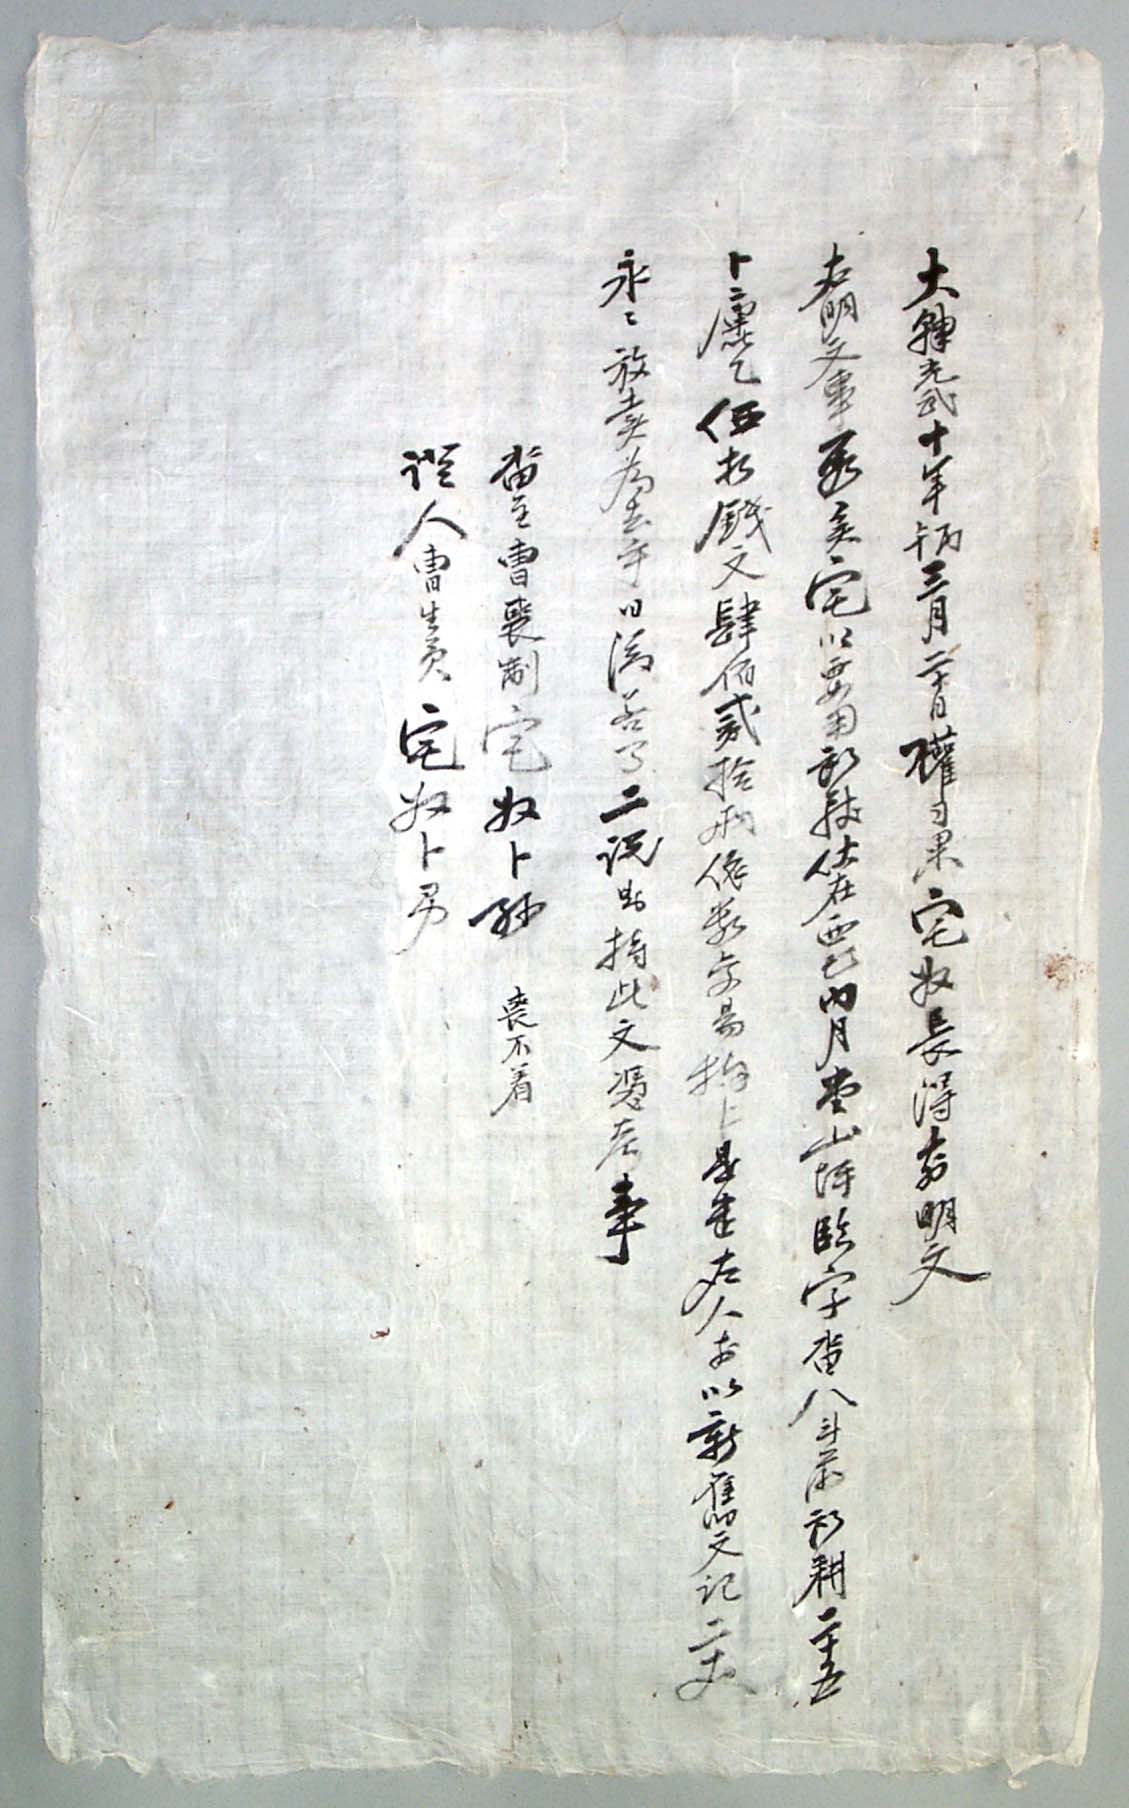 大韓光武十年丙午三月二十日權司果宅奴長得前明文
右明文事段矣宅以要用所致伏在西內月堂山坪臨字畓八斗落所耕二十五
卜庫乙価折錢文肆佰貳拾兩依數交易捧上是遣右人前以新舊文記二丈
永々放賣爲去乎日後若有二說則持此文憑考事
畓主曺喪制宅奴卜孫 喪不着
證人曺生員宅奴卜男